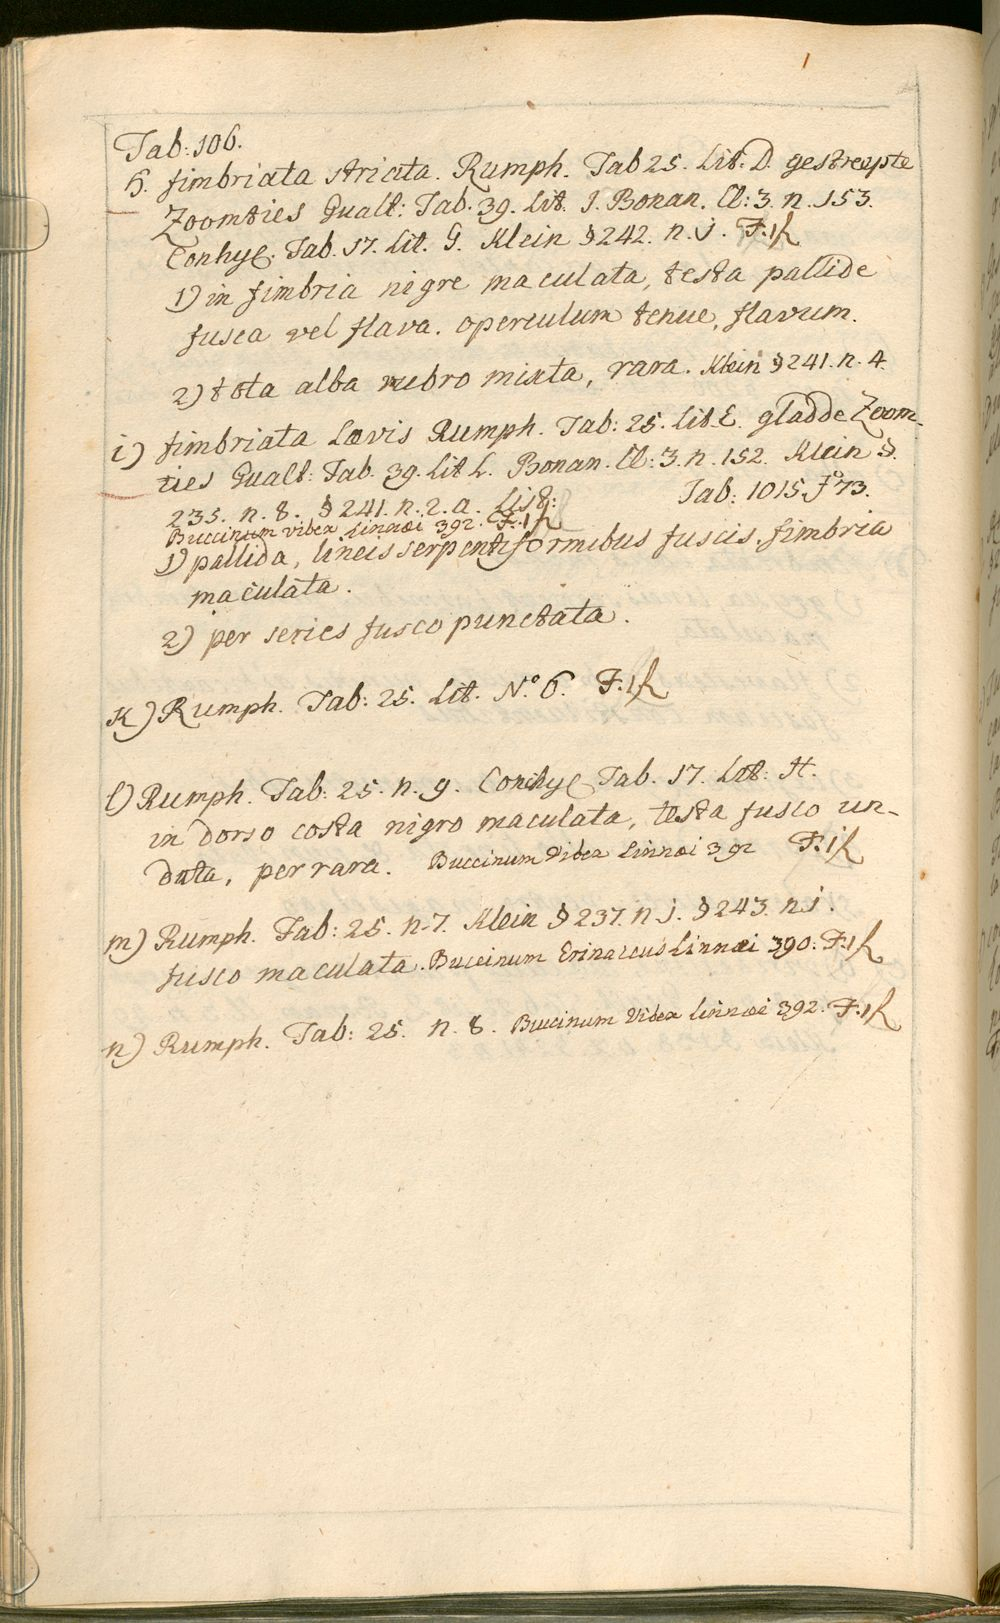 Tab: 106.
h. fimbriata striata. Rumph. Tab 25. Lit. D. gestreepte
Zoomties Gualt: Tab. 39. Lit. I. Bonan. Cl: 3. n. 153.
Conhyl. Tab. 17. Lit. G. Klein § 242. n. 1. F.
1) in fimbria nigre maculata, testa pallide
fusca vel flava. operculum tenue, flavum.
2) tota alba rubro mixta, rara. Klein § 241. n. 4.
i) fimbriata Lævis Rumph. Tab: 25. Lit. E. gladde Zoom-
ties Gualt: Tab. 39. Lit L. Bonan. Cl: 3. n. 152. Klein §.
235. n. 8. § 241. n. 2. a. List: Tab: 1015. fo 73.
Buccinum vibex Linnæi 392. F.
1) pallida, lineis serpentiformibus fuscis. fimbria
maculata.
2) per series fusco punctata.
K) Rumph. Tab: 25. Lit. No. 6. F.
l) Rumph. Tab: 25. n. 9. Conchyl. Tab. 17. Lit: H.
in dorso costa nigro maculata, testa fusco un-
data, per rara. Buccinum Vibex Linnæi 392 F.
m) Rumph. Tab: 25. n. 7. Klein § 237. n j. § 243. n j.
fusco maculata. Buccinum Erinaceus Linnæi 390. F.
n) Rumph. Tab: 25. n. 8. Buccinum Vibex Linnæi 392. F.